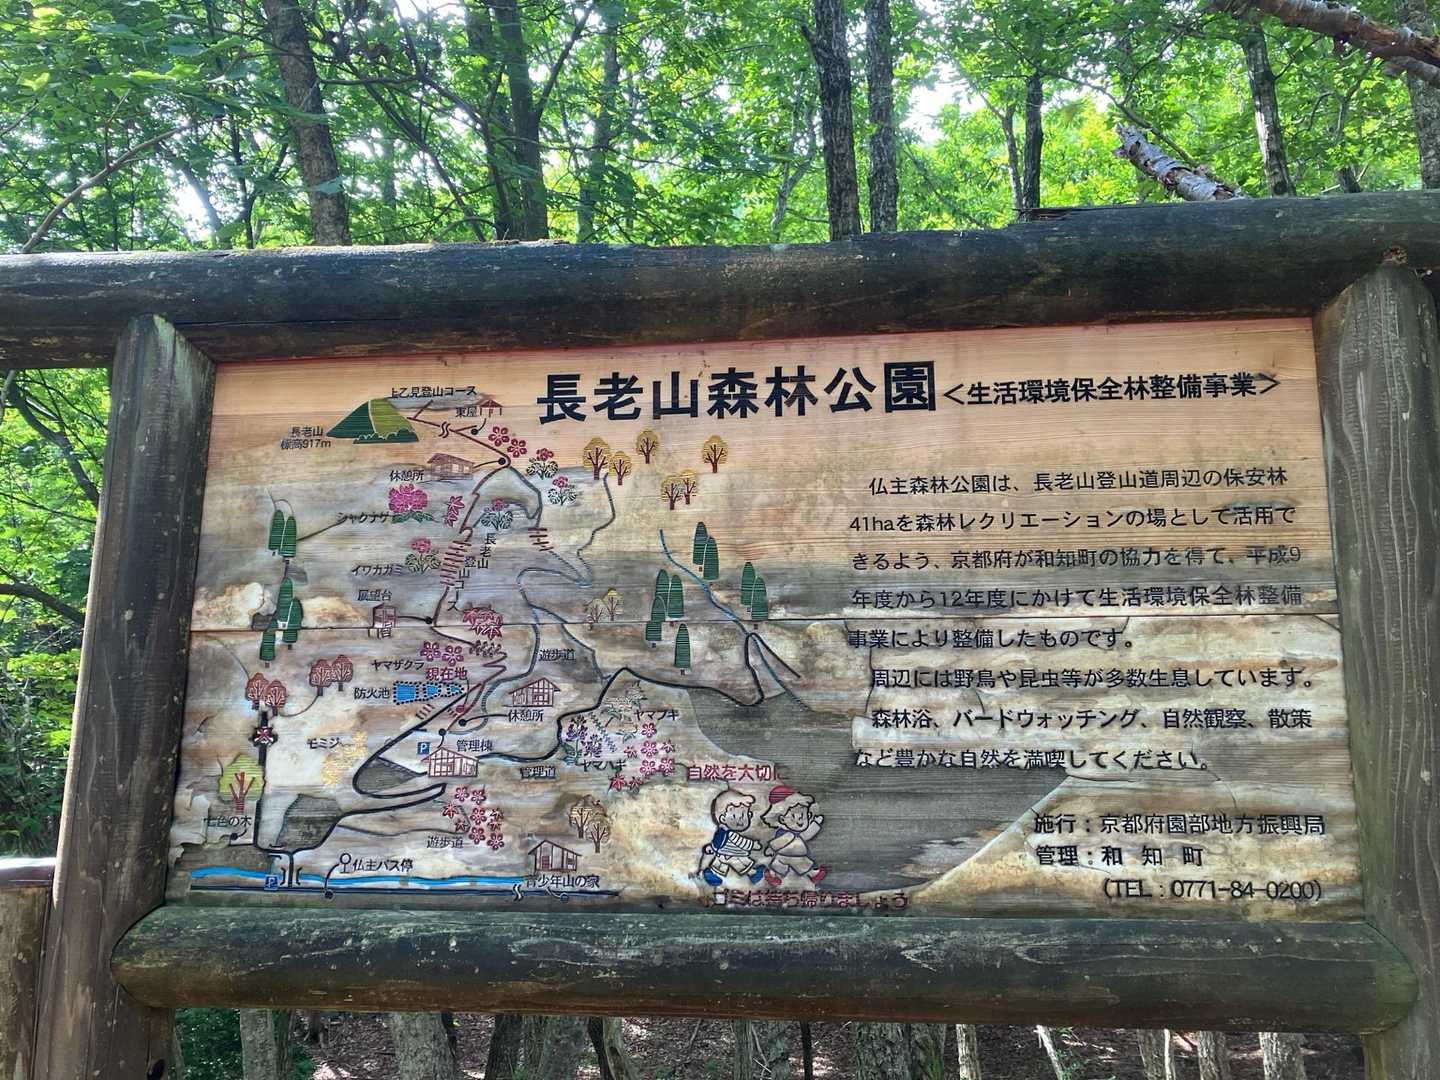 長老山森林公園<生活環境保全林整備事業>
上乙見登山コース
東屋
長老山
標高917m
休憩所
シャクナゲ
長老山登山コース
イワカガミ
展望台
ヤマザクラ
現在地
防火池
遊歩道
休憩所
ヤマブキ
モミジ
P
管理棟
管理道
ヤマハギ
七色の木
遊歩道
仏主バス停
P
青少年山の家
自然を大切に
ゴミは持ち帰りましょう
仏主森林公園は、長老山登山道周辺の保安林
41haを森林レクリエーションの場として活用で
きるよう、京都府が和知町の協力を得て、平成9
年度から12年度にかけて生活環境保全林整備
事業により整備したものです。
周辺には野鳥や昆虫等が多数生息しています。
森林浴、バードウォッチング、自然観察、散策
など豊かな自然を満喫してください。
施行：京都府園部地方振興局
管理：和知町
(TEL：0771-84-0200)